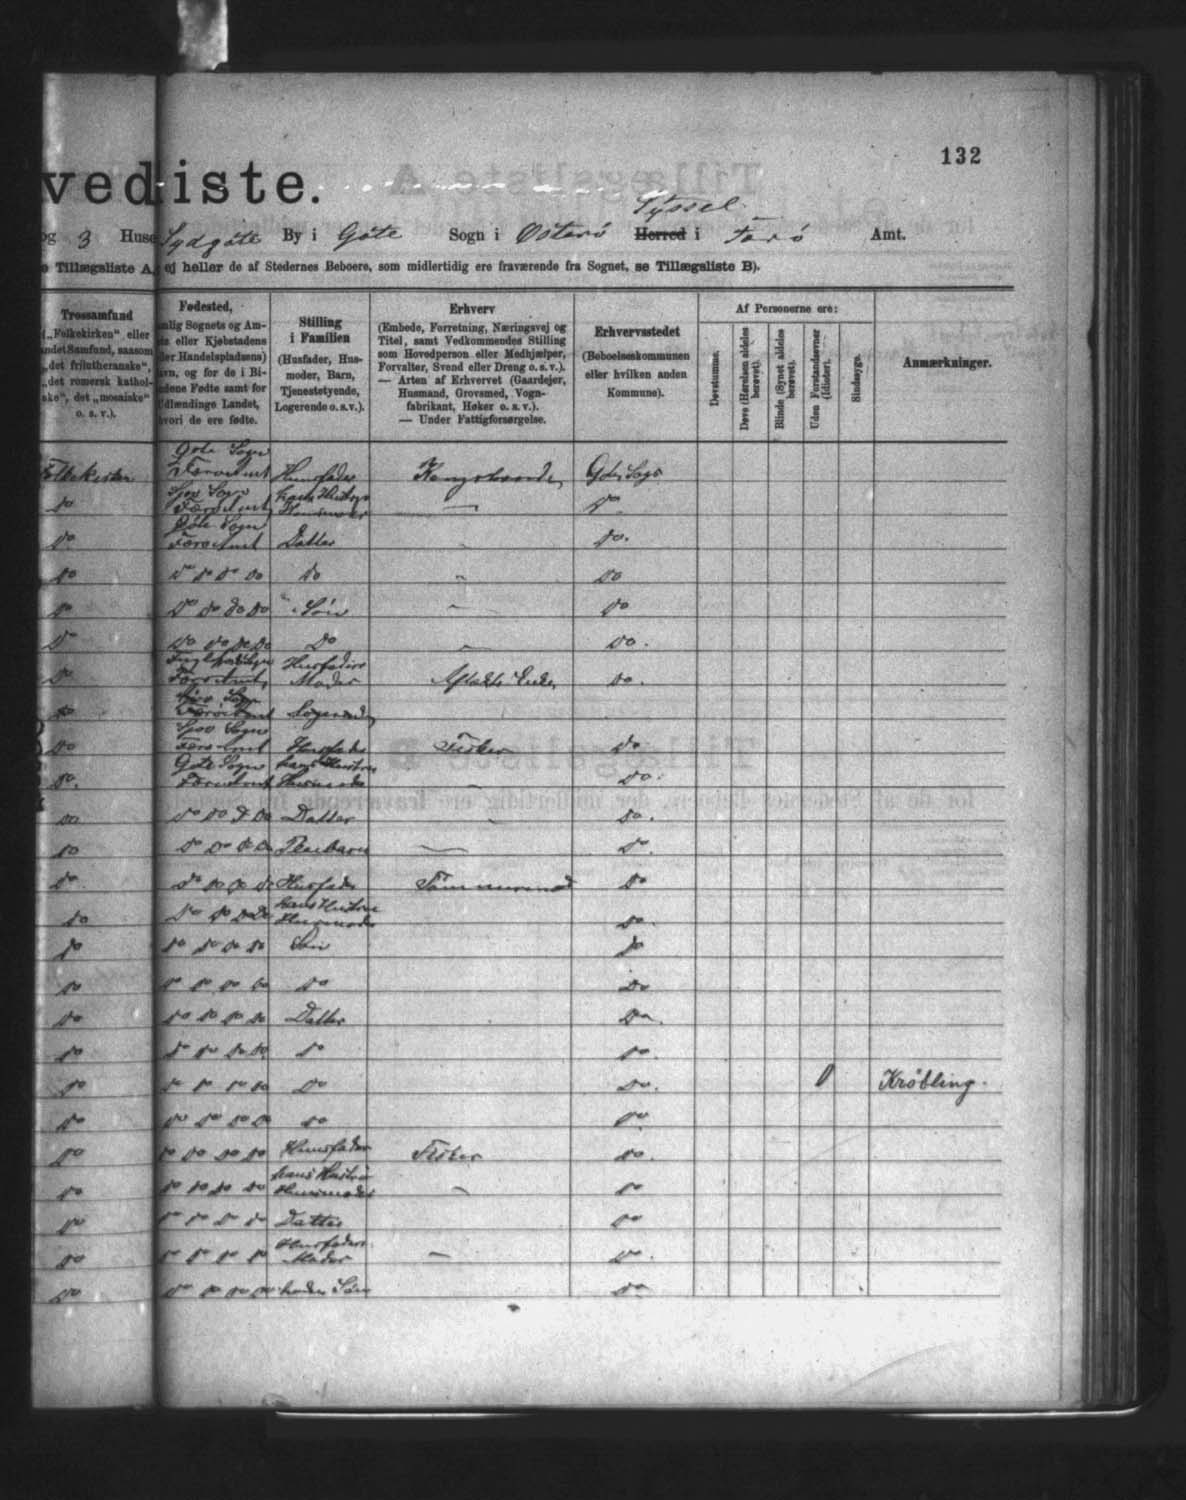 132
vedliste.
og 3 Huse Sydgöte By i Göte Sogn i Österö Herred i Færö Amt.
Syssel
Tillægsliste A, ej heller de af Stedernes Beboere, som midlertidig ere fraværende fra Sognet, se Tillægsliste B).
Trossamfund
(„Folkekirken“ eller
andet Samfund, saasom
„det frilutheranske“,
„det romersk kathol-
ske“, det „mosaiske“
o. s. v.).
Fødested,
nemlig Sognets og Am-
tets eller Kjøbstadens
(eller Handelspladsens)
Navn, og for de i Bi-
landene Fødte samt for
Udlændinge Landet,
hvori de ere fødte.
Stilling
i Familien
(Husfader, Hus-
moder, Barn,
Tjenestetyende,
Logerende o. s. v.).
Erhverv
(Embede, Forretning, Næringsvej og
Titel, samt Vedkommendes Stilling
som Hovedperson eller Medhjælper,
Forvalter, Svend eller Dreng o. s. v.).
— Arten af Erhvervet (Gaardejer,
Husmand, Grovsmed, Vogn-
fabrikant, Høker o. s. v.).
— Under Fattigforsørgelse.
Erhvervsstedet
(Beboelseskommunen
eller hvilken anden
Kommune).
Af Personerne ere:
Døvstumme.
Døve (Hørelsen aldeles
berøvet).
Blinde (Synet aldeles
berøvet).
Uden Forstandsevner
(Idioter).
Sindssyge.
Anmærkninger.
Folkekirken Göte Sogn Færöe Amt Huusfader Kongsbonde Göte Sogn
Do Sjov Sogn Færöe Amt hans Hustru Huusmoder — Do
Do Göte Sogn Færöe Amt Datter Do.
Do Do Do Do Do Do Do
Do Do Do Do Do Søn Do
Do Do Do Do Do Do Do.
Do Færöe Amt Husfaders Moder Aftægts Enke Do.
Do Sjov Sogn Færöe Amt Logerende
Do Sjov Sogn Færöe Amt Husfader Fisker Do
Do. Göte Sogn Færöe Amt hans Hustru Husmoder Do.
Do Do Do Do Do Datter Do.
Do Do Do Do Do Pleiebarn — Do.
Do. Do Do Do Do Husfader Tömmermand Do
Do Do Do Do Do hans Hustru Husmoder Do.
Do Do Do Do Do Søn Do
Do Do Do Do Do Do Do
Do Do Do Do Do Datter Do.
Do Do Do Do Do Do Do.
Do Do Do Do Do Do Do. Kröbling.
Do Do Do Do Do Do Do.
Do Do Do Do Do Huusfader Fisker Do.
Do Do Do Do Do hans Hustru Huusmoder — Do
Do Do Do Do Do Datter Do
Do Do Do Do Do Husfaders Moder — Do.
Do Do Do Do Do hendes Søn Do